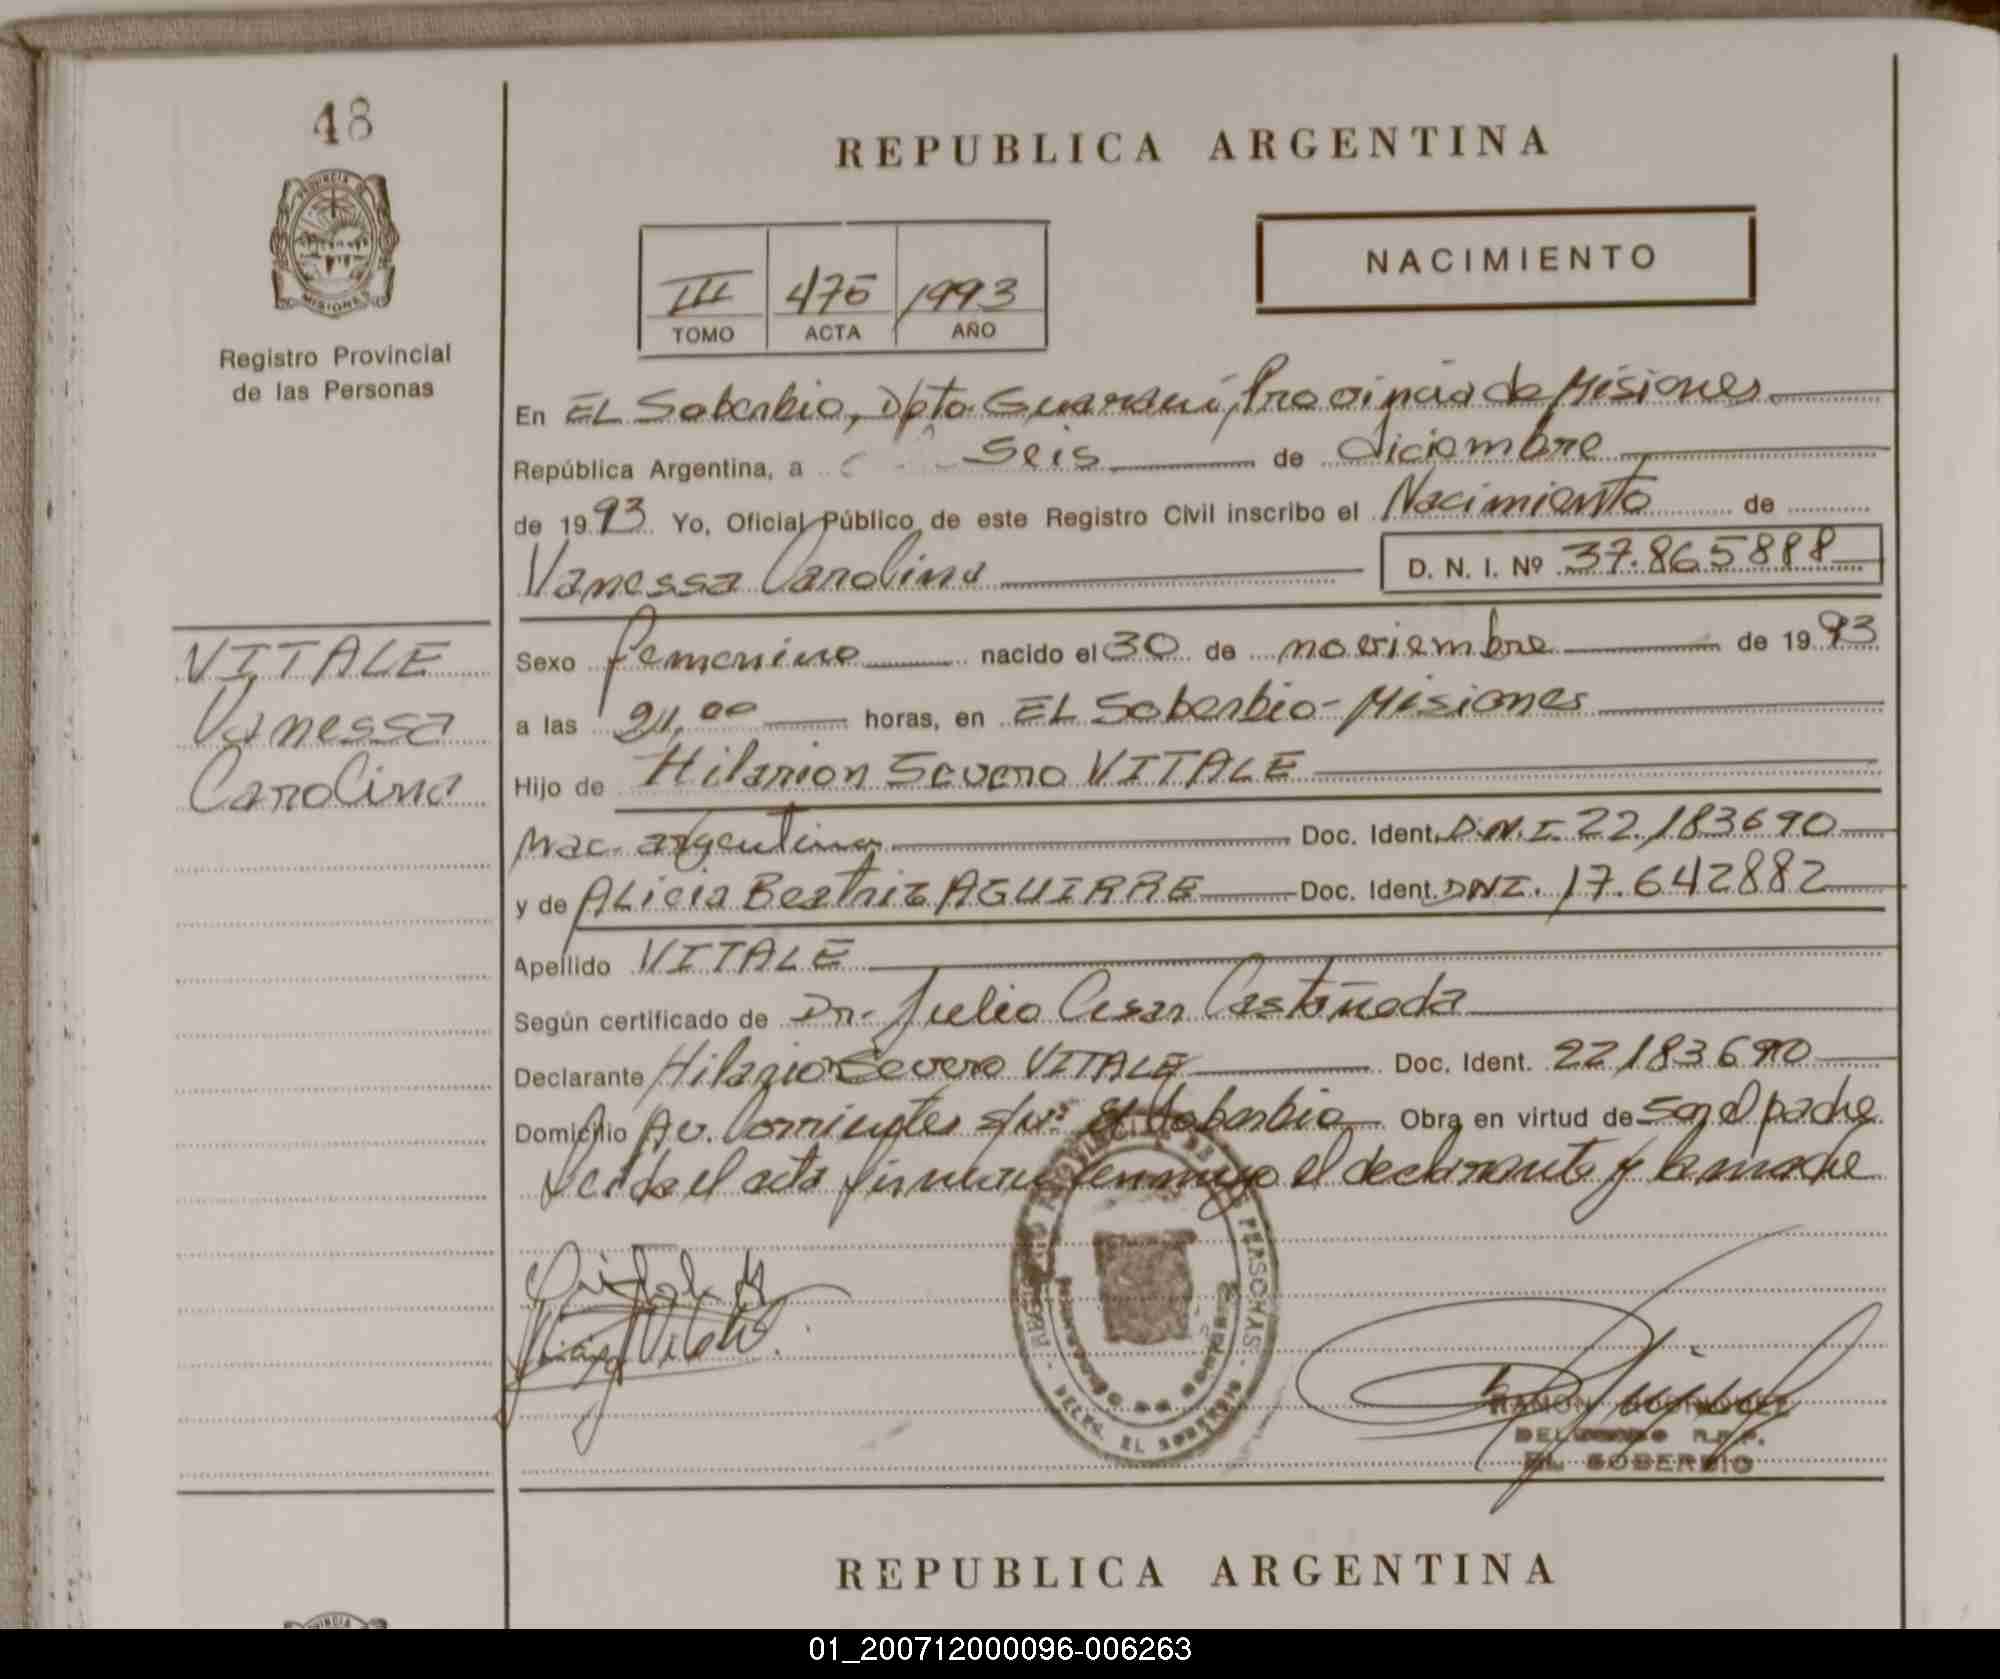 48
PROVINCIA DE
MISIONES
Registro Provincial
de las Personas
REPUBLICA ARGENTINA
NACIMIENTO
III 475 1993
TOMO ACTA AÑO
En EL Soberbio, Dpto Guaraní, Provincia de Misiones
República Argentina, a Seis de diciembre
de 1993 Yo, Oficial Público de este Registro Civil inscribo el Nacimiento de
Vanessa Carolina D. N. I. Nº 37.865888
VITALE
Vanessa
Carolina
Sexo femenino nacido el 30 de noviembre de 1993
a las 21,00 horas, en EL Soberbio - Misiones
Hijo de Hilarion Severo VITALE
Nac. argentina Doc. Ident. D.N.I. 22.183690
y de ALicia Beatriz AGUIRRE Doc. Ident. DNI. 17.642882
Apellido VITALE
Según certificado de Dr. Julio Cesar Castañeda
Declarante Hilario Severo VITALE Doc. Ident. 22183690
Domicilio Av. Corrientes s/nº El Soberbio Obra en virtud de Ser el padre
Leida el acta firman conmigo el declarante y la madre
REGISTRO PROVINCIAL DE LAS PERSONAS
DELEG. EL SOBERBIO
RAMON RODRIGUEZ
DELEGADO R.P.P.
EL SOBERBIO
REPUBLICA ARGENTINA
01_200712000096-006263